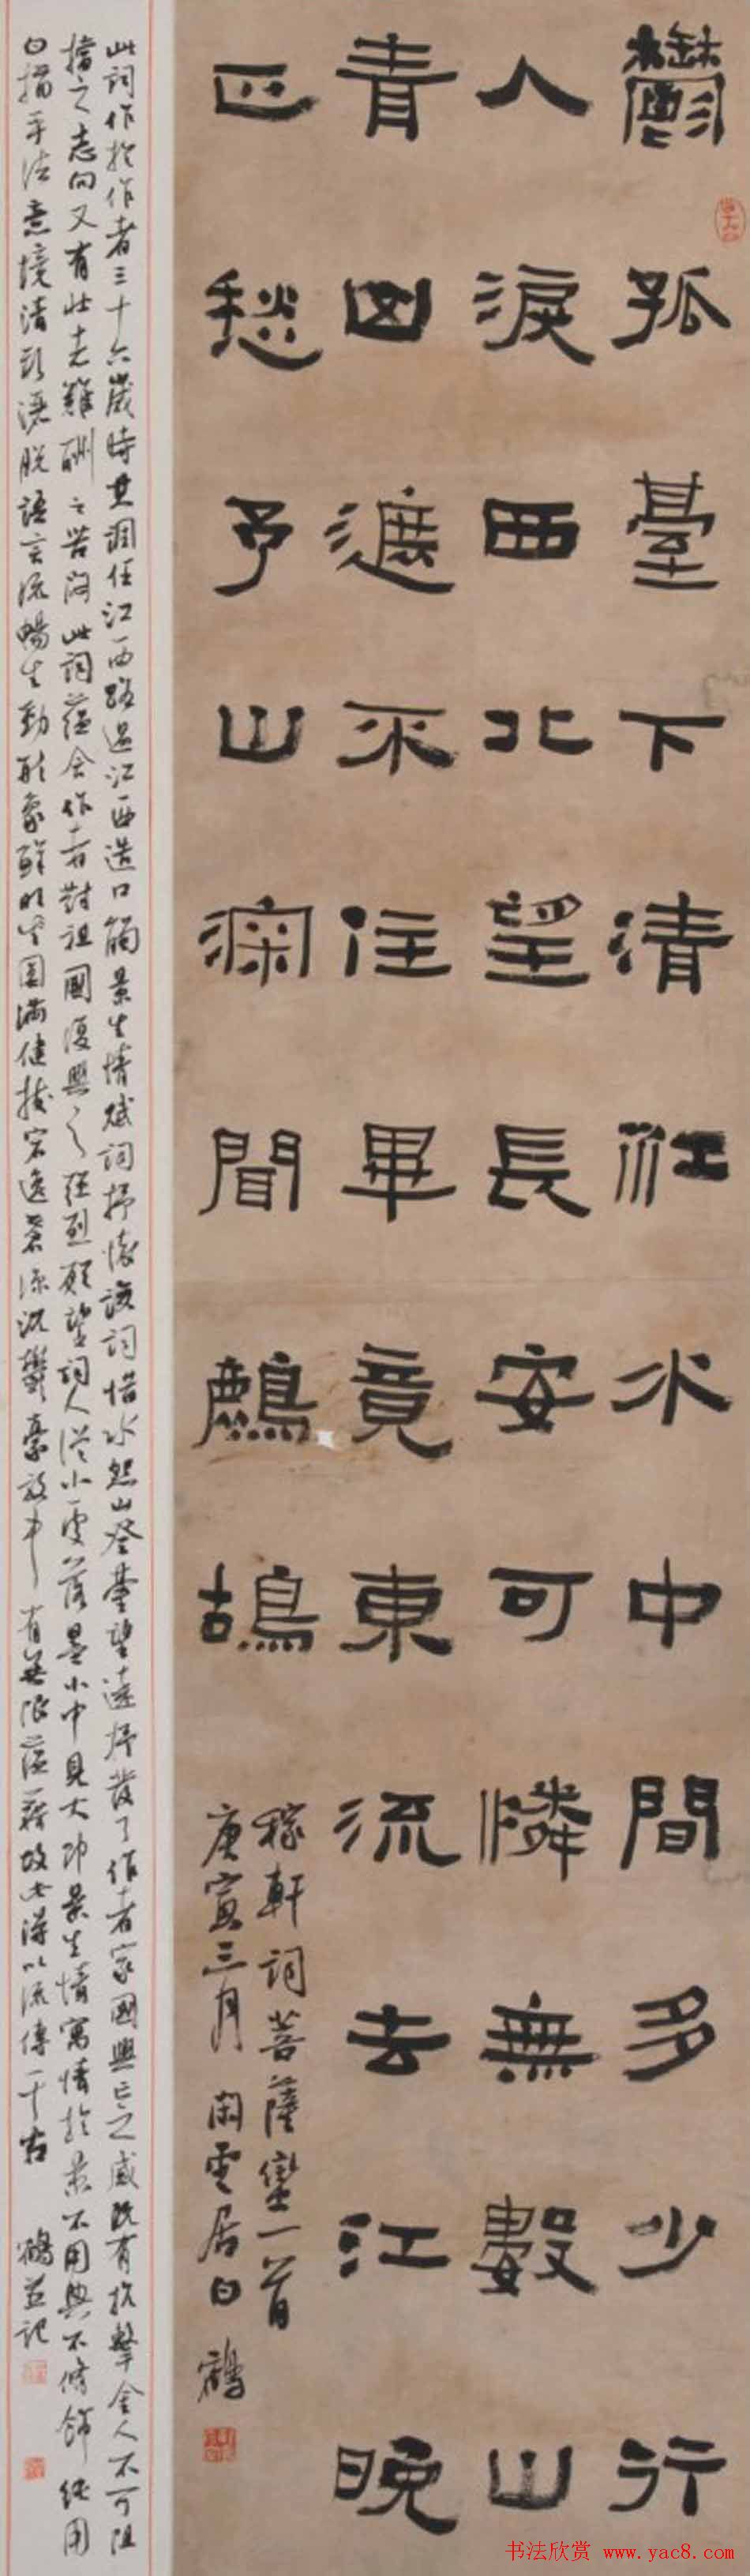 鬱孤臺下清江水中間多少行
人淚西北望長安可憐無數山
青山遮不住畢竟東流去江晚
正愁予山深聞鷓鴣
稼軒詞菩薩蠻一首
庚寅三月閑雲居白鶴
此詞作於作者三十六歲時其調任江西路過江西造口觸景生情賦詞抒懷該詞惜水怨山登臺望遠抒發了作者家國興亡之感既有抗擊金人不可阻
擋之志向又有壯志難酬之苦悶此詞蘊含作者對祖國復興之強烈願望詞人從小處落墨小中見大即景生情寓情於景不用典不修飾純用
白描手法意境清新灑脫語言流暢生動形象鮮明圓滿健拔宏逸蒼涼沉鬱豪放中有無限蘊藉故此得以流傳千古 鶴並記
书法欣赏 www.yac8.com